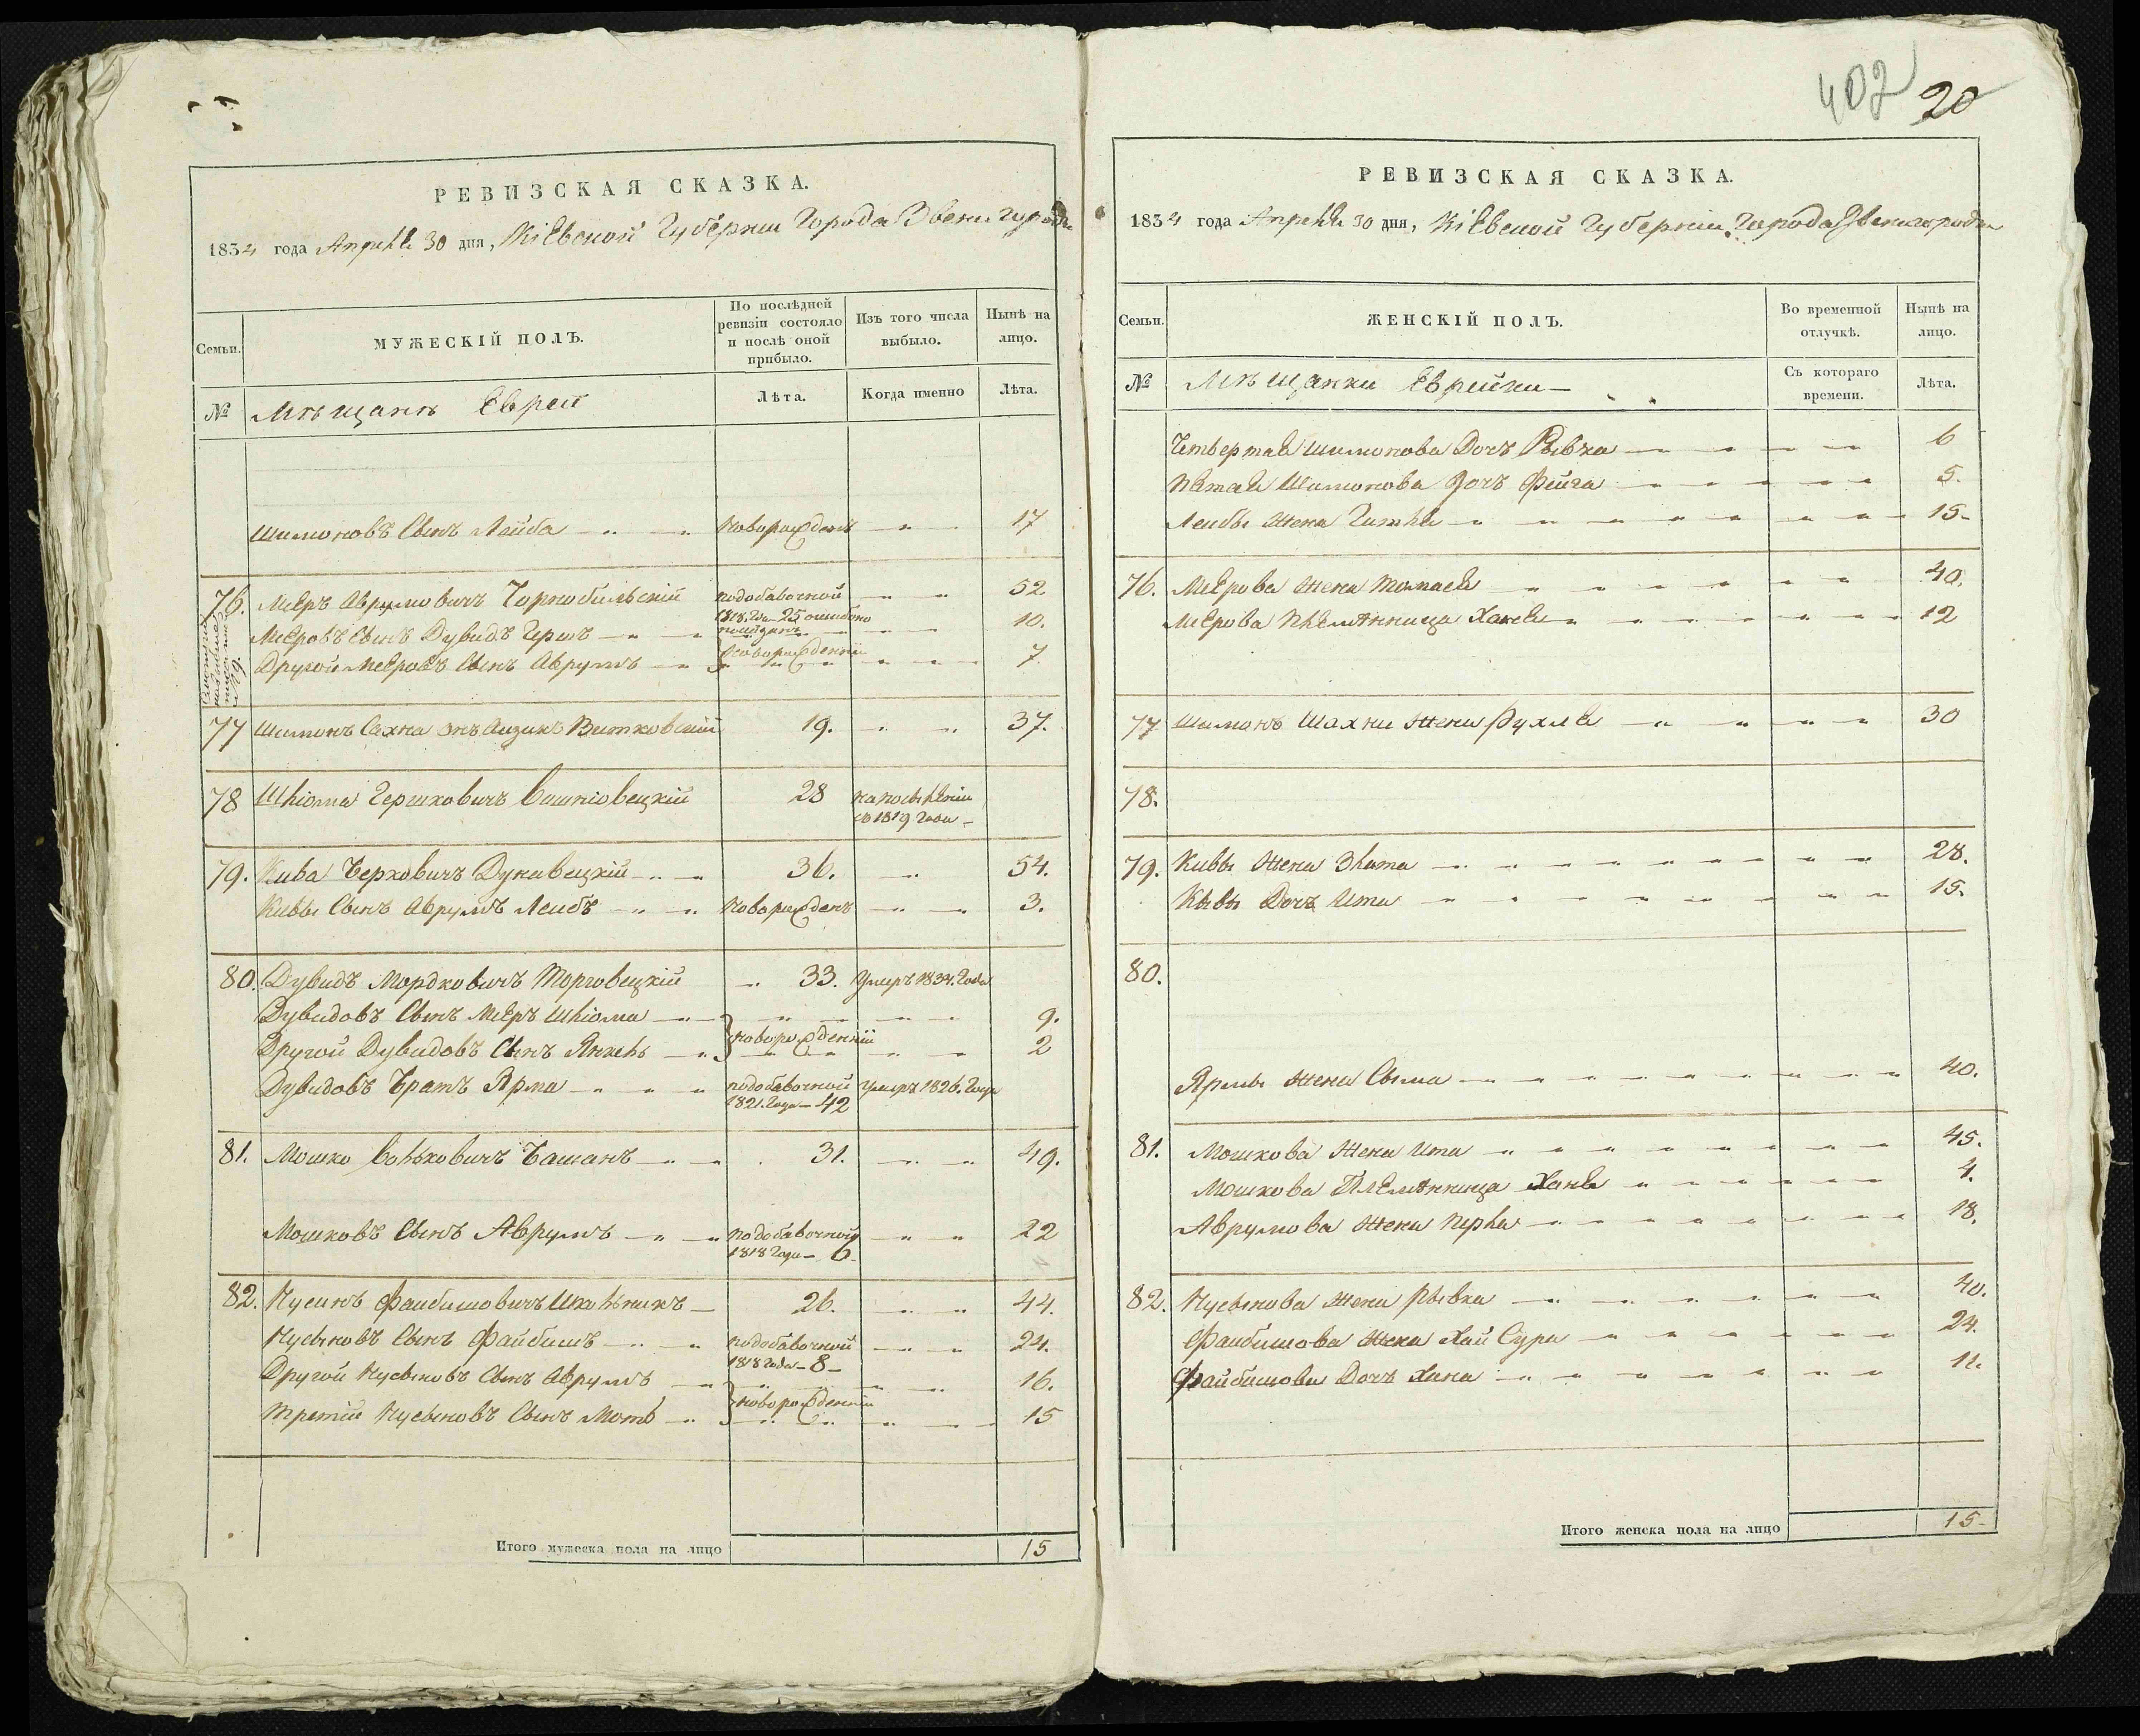 РЕВИЗСКАЯ СКАЗКА.
1834 года Апреля 30 дня, Кіевской Губерніи Города Звенигородки
Семьи.
МУЖЕСКІЙ ПОЛЪ.
По послѣдней ревизіи состояло и послѣ оной прибыло.
Изъ того числа выбыло.
Нынѣ на лицо.
№
Мѣщанъ Евреи
Лѣта.
Когда именно
Лѣта.
Шимоновъ Сынъ Лейба новорожденъ 17
76. Меєръ Аврумовичъ Чорнобильскій подобавочной 1818. Года 25 ошибочно 52
Меєровъ Сынъ Дувидъ Гершъ 10.
Другой Меєровъ Сынъ Аврумъ новорожденніи 7
77 Шимонъ Сахна Айзикъ Витковскій 19. 37.
78 Шліома Гершковичъ 28 на поселеніи въ 1819 Года
79. Кива Берковичъ Дунавецкій 36. 54.
Кивы Сынъ Аврумъ Лейбъ новорожденъ 3.
80. Дувидъ Мордковичъ Торговецкій 33. Умеръ 1834. Года
Дувидовъ Сынъ Меєръ Шліома 9.
Другой Дувидовъ Сынъ Янкель новорожденніи 2
Дувидовъ Братъ Ярма подобавочной 1821. Года 42 умеръ 1826. Года
81. Мошко Волковичъ Башанъ 31. 49.
Мошковъ Сынъ Аврумъ подобавочной 1818 Года 6. 22
82. Нусинъ Файбишовичъ Школьникъ 26. 44.
Нусыновъ Сынъ Файбишъ подобавочной 1818 Года 8 24.
Другой Нусыновъ Сынъ Аврумъ 16.
Третій Нусыновъ Сынъ Мотъ новорожденніи 15
Итого мужеска пола на лицо 15
402
20
РЕВИЗСКАЯ СКАЗКА.
1834 года Апреля 30 дня, Кіевской Губерніи Города Звенигородки
Семьи.
ЖЕНСКІЙ ПОЛЪ.
Во временной отлучкѣ.
Нынѣ на лицо.
№
Мѣщанки Еврейки
Съ котораго времени.
Лѣта.
Четвертая Шимонова Дочъ Рывка 6
Пятая Шимонова Дочъ Фейга 5.
Лейбы Жена Гитля 15
76. Меєрова Жена 40.
Меєрова Племѣнница Ханя 12
77 Шимонъ Шахны Жена Рухля 30
78.
79. Кивы Жена Злата 28.
Кывы Дочъ Ита 15.
80.
Ярмы Жена Сыма 40.
81. Мошкова Жена Ита 45.
Мошкова Племѣнница Ханя 4.
Аврумова Жена Перля 18.
82. Нусынова Жена Рывка 40.
Файбишова Жена Хай Сура 24.
Файбишова Дочъ Хана
Итого женска пола на лицо 15